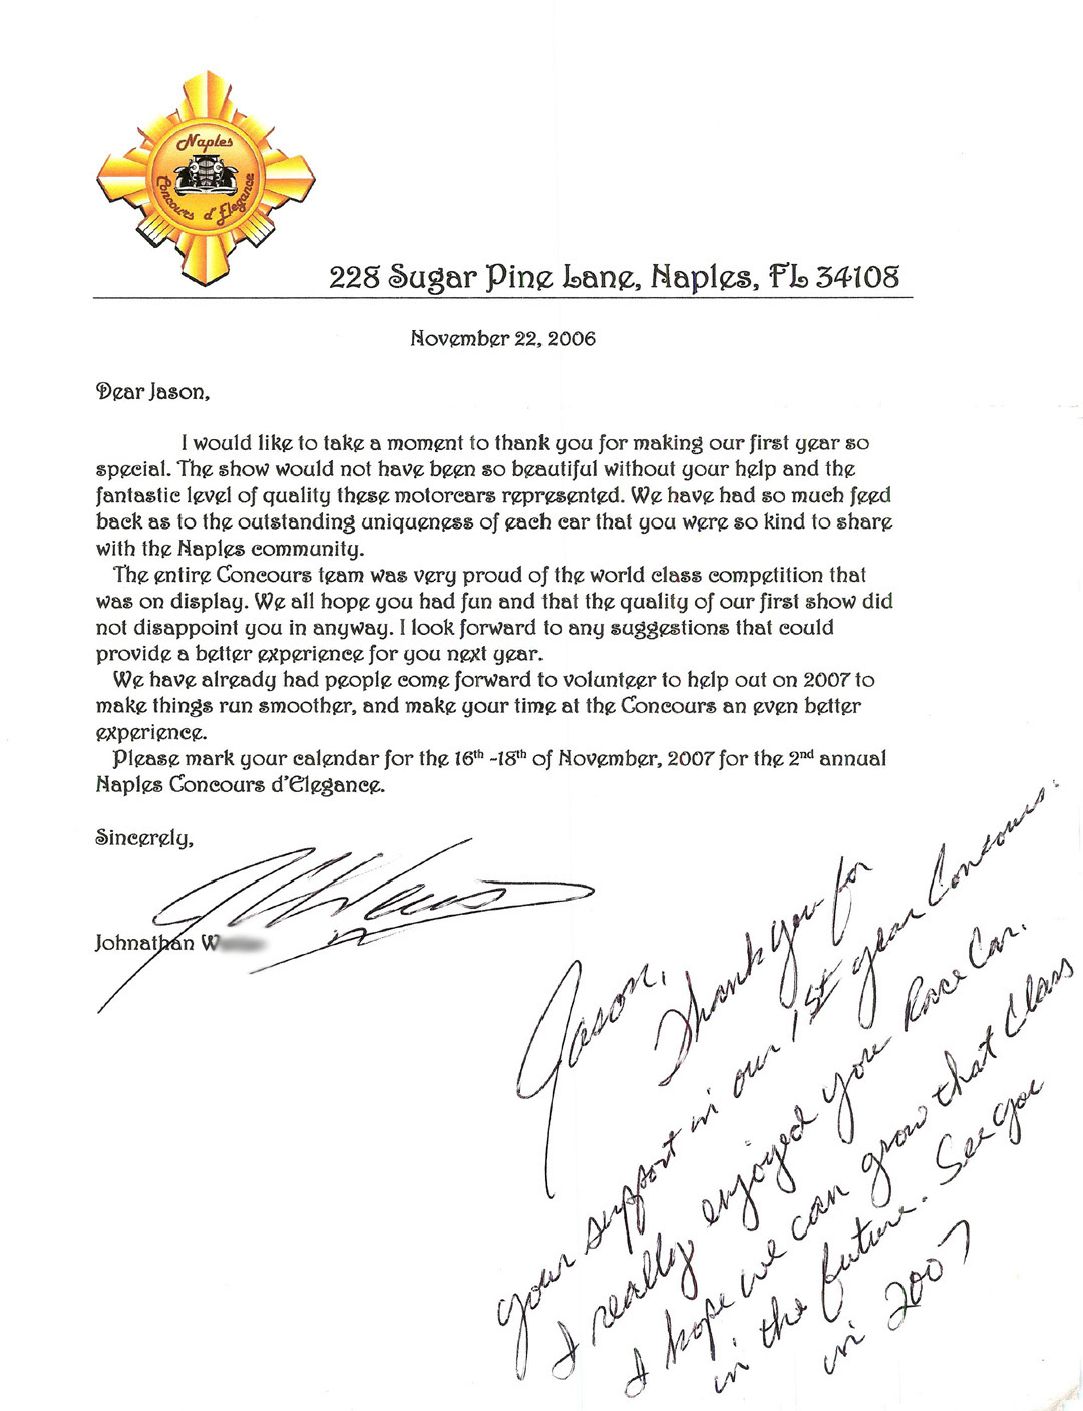 Naples
Concours d'Elegance
228 Sugar Pine Lane, Naples, FL 34108
November 22, 2006
Dear Jason,
I would like to take a moment to thank you for making our first year so
special. The show would not have been so beautiful without your help and the
fantastic level of quality these motorcars represented. We have had so much feed
back as to the outstanding uniqueness of each car that you were so kind to share
with the Naples community.
The entire Concours team was very proud of the world class competition that
was on display. We all hope you had fun and that the quality of our first show did
not disappoint you in anyway. I look forward to any suggestions that could
provide a better experience for you next year.
We have already had people come forward to volunteer to help out on 2007 to
make things run smoother, and make your time at the Concours an even better
experience.
Please mark your calendar for the 16th -18th of November, 2007 for the 2nd annual
Naples Concours d'Elegance.
Sincerely,
Johnathan W
Jason,
Thank you for
your support in our 1st year Concours.
I really enjoyed your Race Car.
I hope we can grow that Class
in the future. See you
in 2007